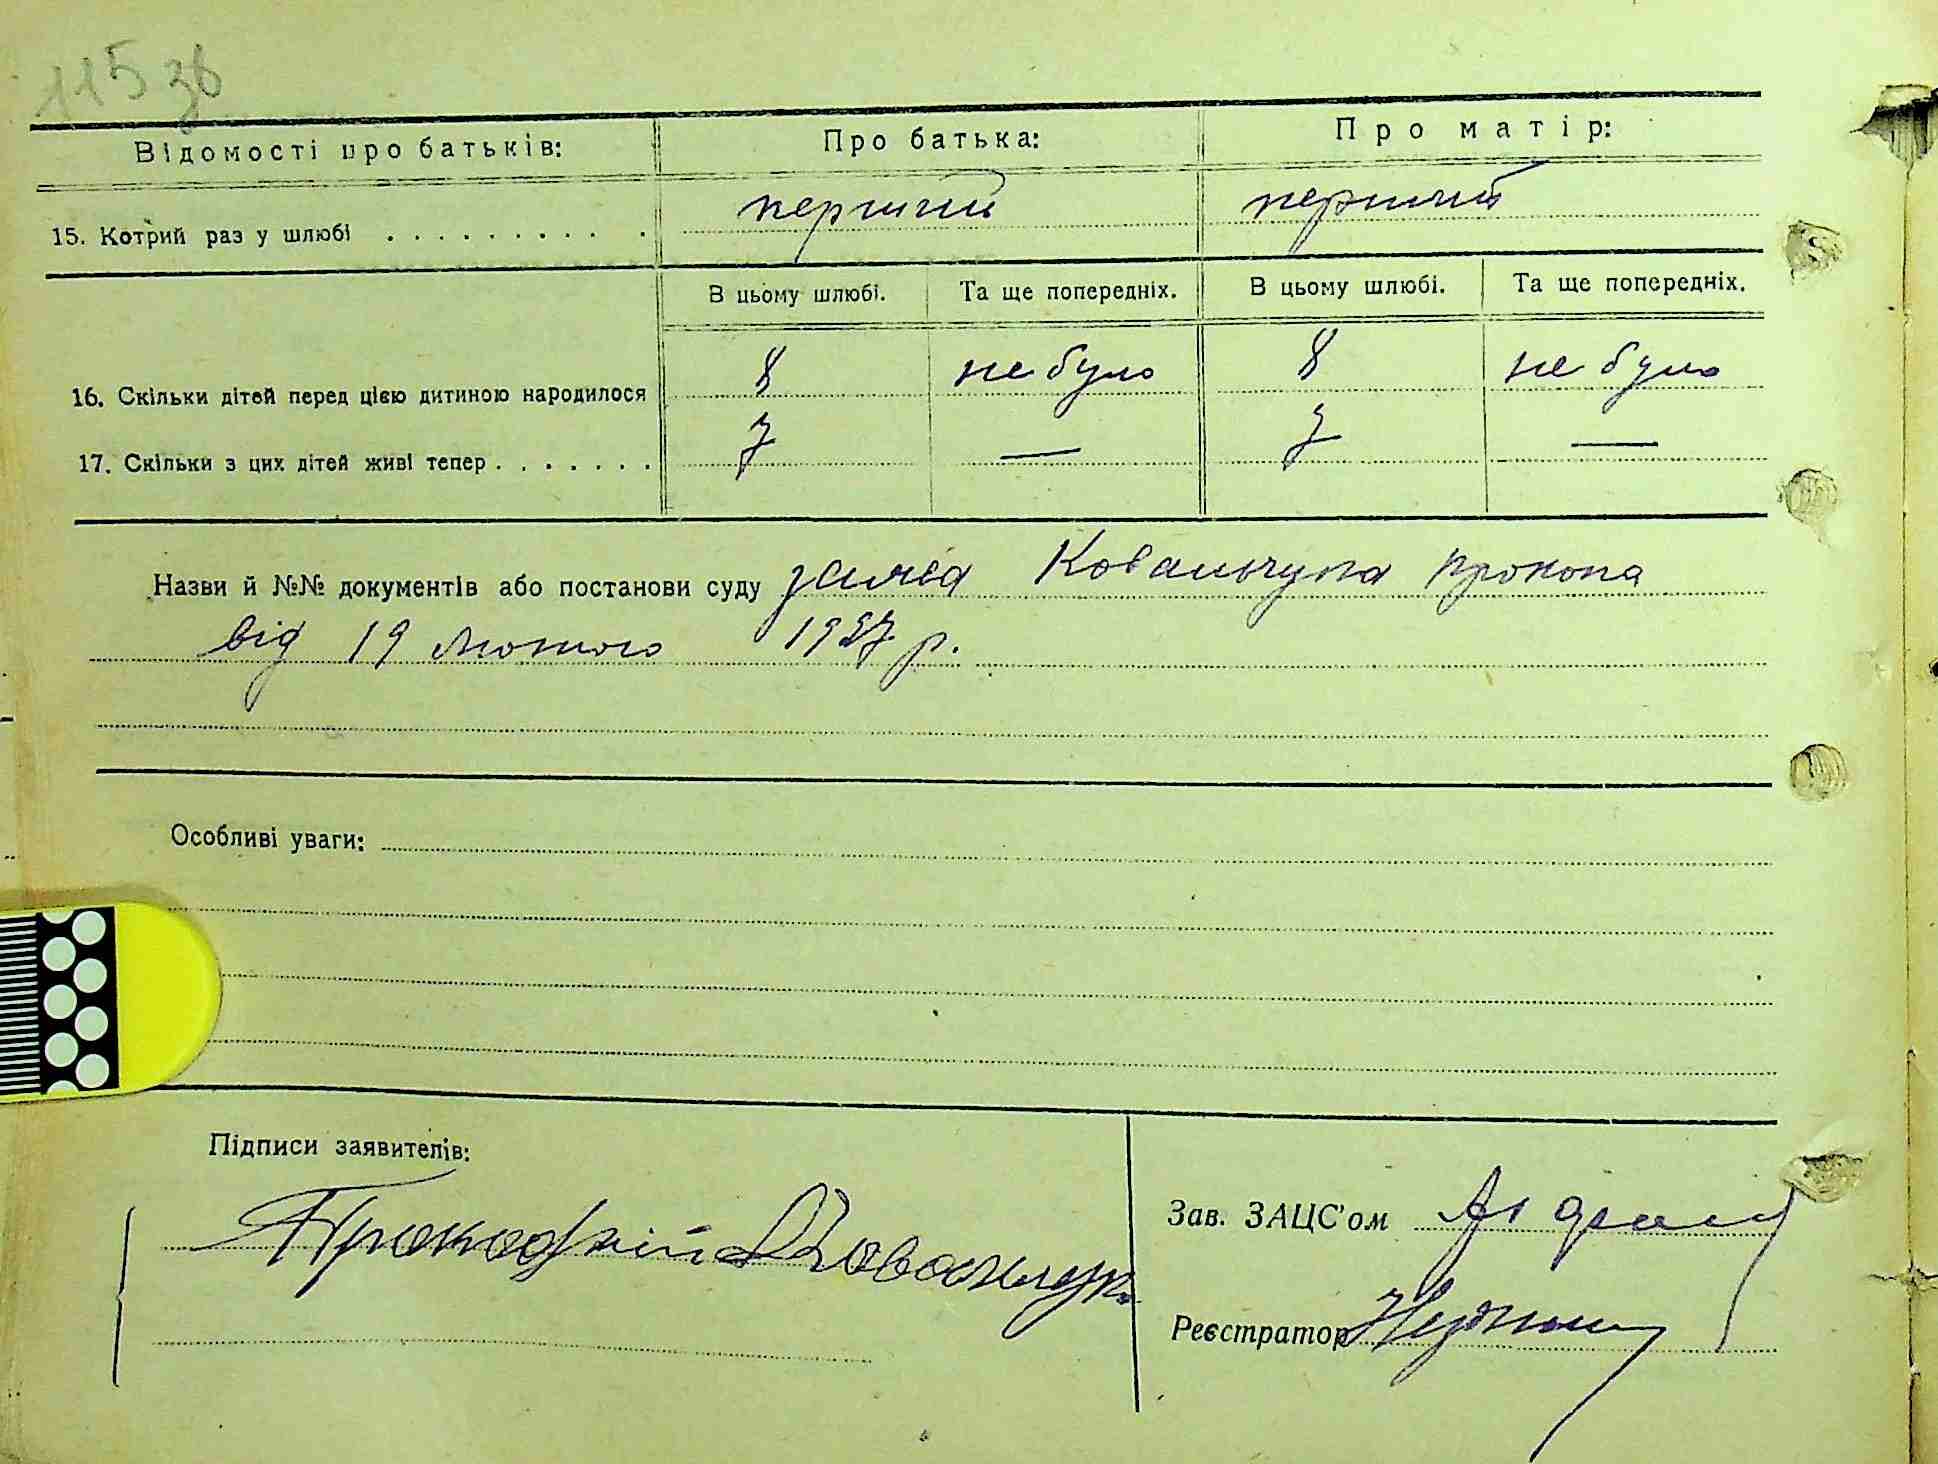 115 зв
Відомості про батьків: Про батька: Про матір:
15. Котрий раз у шлюбі . . . . . . . . . . перший перший
В цьому шлюбі. Та ще попередніх. В цьому шлюбі. Та ще попередніх.
16. Скільки дітей перед цією дитиною народилося 8 не було 8 не було
17. Скільки з цих дітей живі тепер . . . . . . . 7 — 7 —
Назви й №№ документів або постанови суду заява Ковальчука Прокопа
від 19 лютого 1927 р.
Особливі уваги:
Підписи заявителів:
Прокофій Ковальчук
Зав. ЗАЦС'ом
Реєстратор